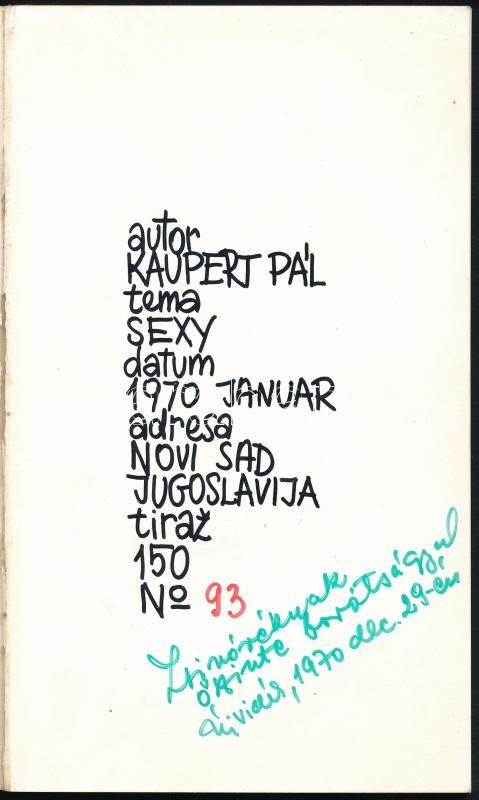 autor
KAUPERT PÁL
tema
SEXY
datum
1970 JANUAR
adresa
NOVI SAD
JUGOSLAVIJA
tiraž
150
Nº 93
őszinte barátsággal
Újvidék, 1970 dec. 29-én